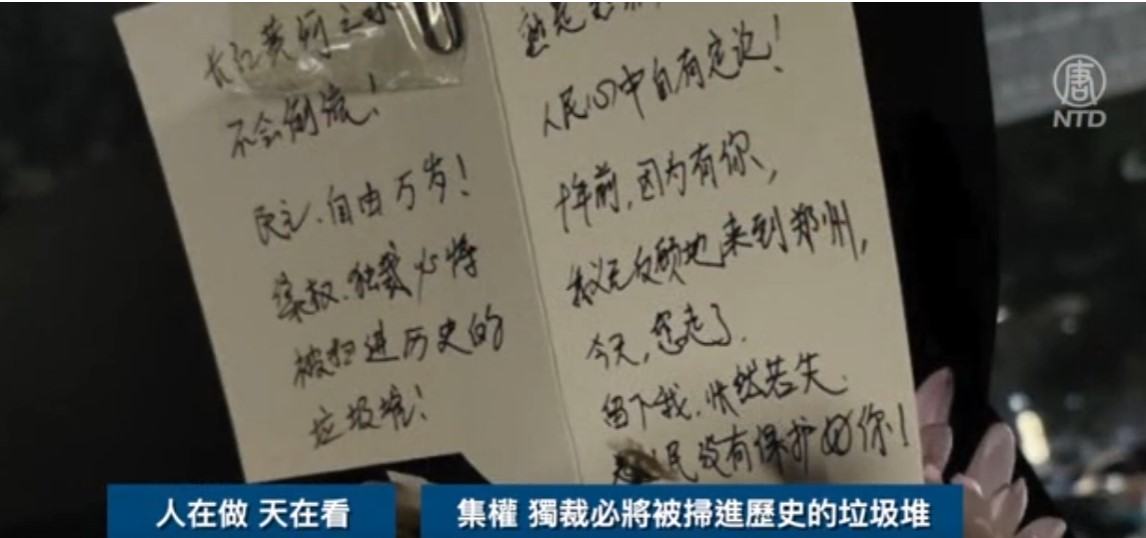 长江黄河之水
不会倒流！
民主、自由万岁！
集权、独裁必将
被扫进历史的
垃圾堆！
人民心中自有定论！
十年前，因为有你、
我义无反顾地来到郑州，
今天，您走了．
留下我．怅然若失．
人民没有保护好你！
唐
NTD
人在做 天在看
集權 獨裁必將被掃進歷史的垃圾堆